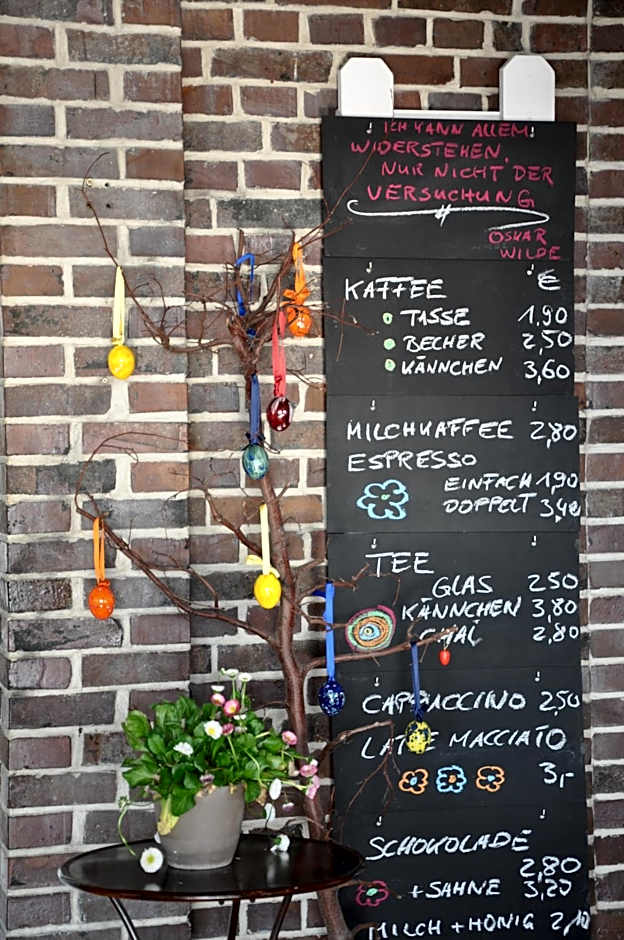 ICH KANN ALLEM
WIDERSTEHEN,
NUR NICHT DER
VERSUCHUNG
OSKAR
WILDE
KAFFEE €
TASSE 1,90
BECHER 2,50
KÄNNCHEN 3,60
MILCHKAFFEE 2,80
ESPRESSO
EINFACH 1,90
DOPPELT 3,40
TEE
GLAS 2,50
KÄNNCHEN 3,80
CHAI 2,80
CAPPUCCINO 2,50
LATTE MACCIATO
3,-
SCHOKOLADE
2,80
+ SAHNE 3,20
MILCH + HONIG 2,10